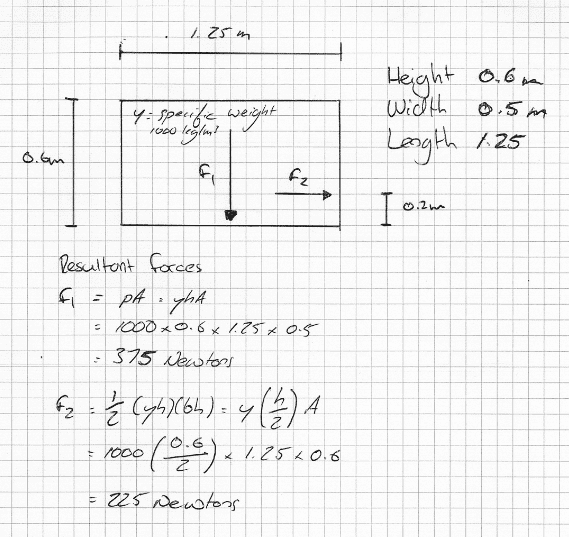 1.25 m
Height 0.6m
Width 0.5m
Length 1.25
y = specific weight
1000 kg/m³
0.6m
F₁
F₂
0.2m
Resultant forces
F₁ = pA = yhA
= 1000 x 0.6 x 1.25 x 0.5
= 375 Newtons
F₂ = 1/2 (yh)(bh) = y (h/2) A
= 1000 (0.6/2) x 1.25 x 0.6
= 225 Newtons